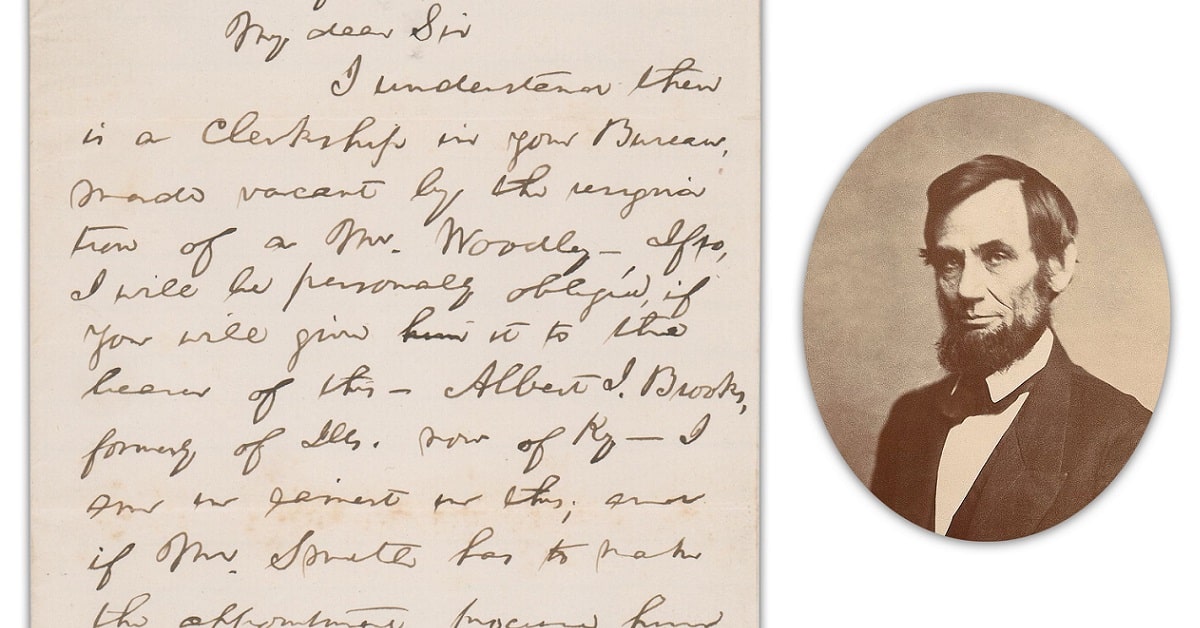 My dear Sir
I understand there
is a Clerkship in your Bureau,
made vacant by the resigna
tion of a Mr. Woodly—, If so,
I will be personally obliged, if
you will give him it to the
bearer of this— Albert J. Brooks,
formerly of Ills. now of Ky— I
am in earnest in this; and
if Mr. Smith has to make
the appointment, procure him